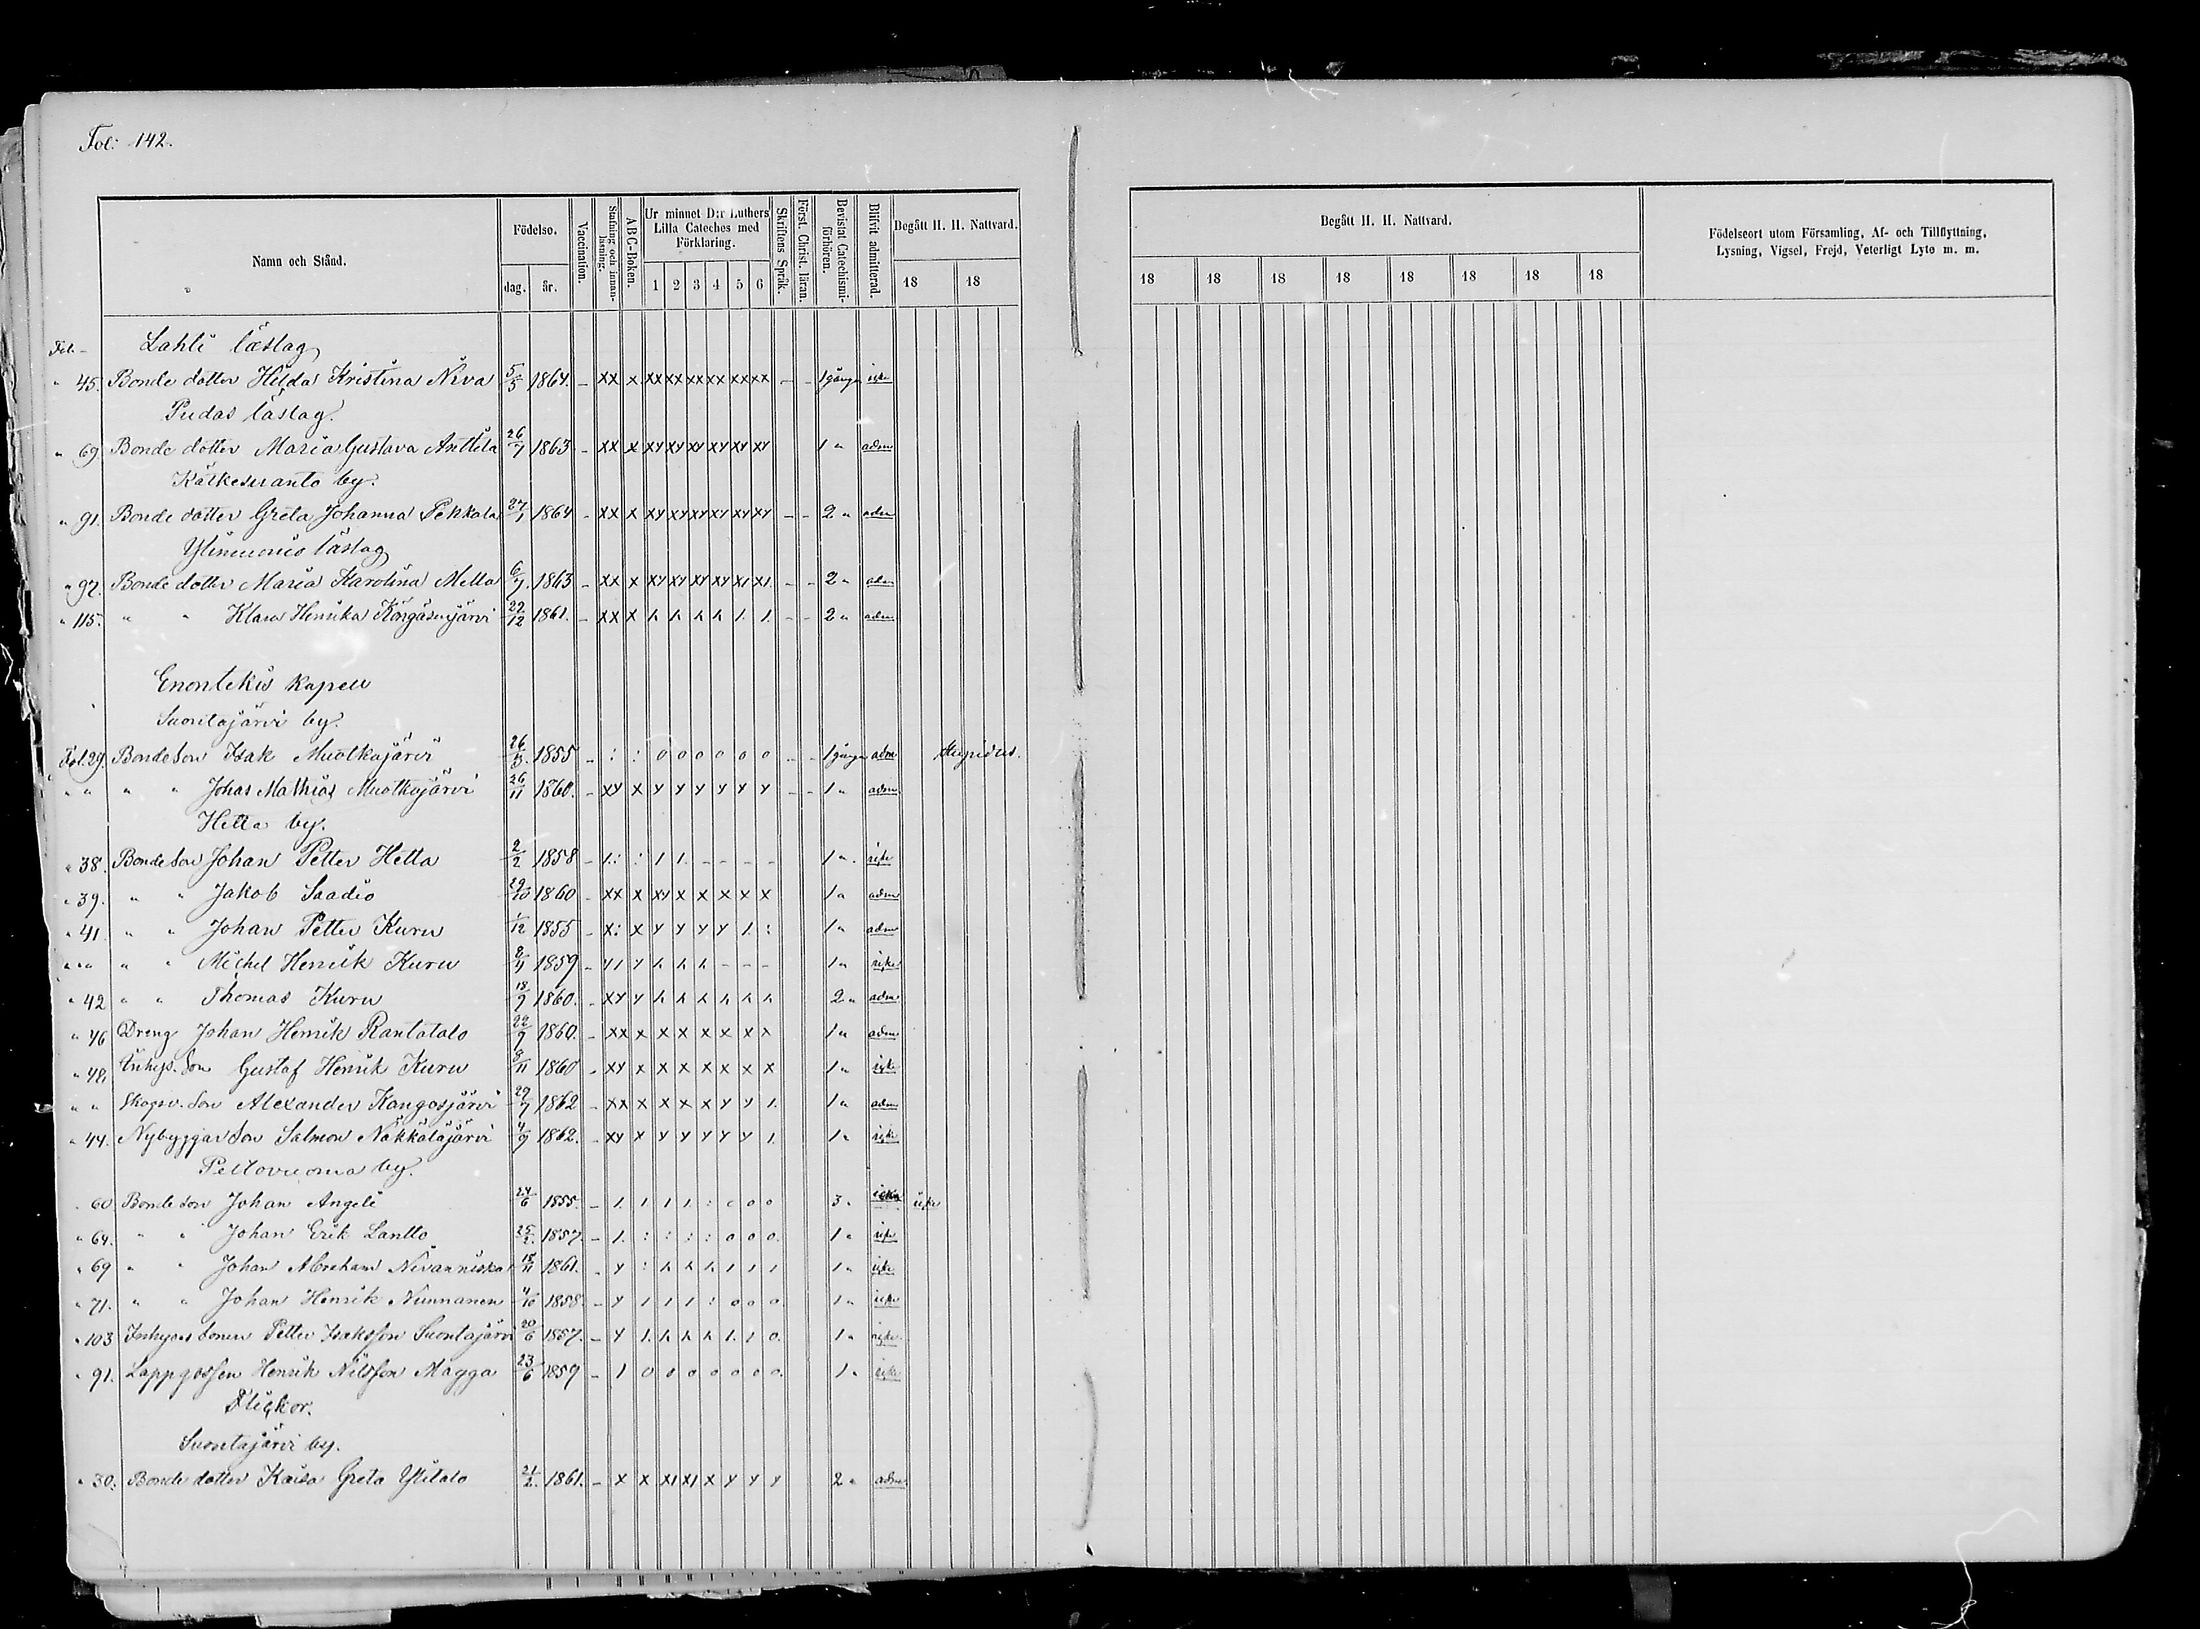 Fol: 142.
Namn och Stånd.
Födelse.
dag. år.
Vaccination.
Stafning och innan-läsning.
ABC-Boken.
Ur minnet D:r Luthers Lilla Cateches med Förklaring.
1 2 3 4 5 6
Skriftens Språk.
Först. Christ. läran.
Bevistat Catechismi-förhören.
Blifvit admitterad.
Begått H. H. Nattvard.
18 18
Begått H. H. Nattvard.
18 18 18 18 18 18 18 18
Födelseort utom Församling, Af- och Tillflyttning,
Lysning, Vigsel, Frejd, Veterligt Lyte m. m.
Fol. Lahti läslag
" 45. Bonde dotter Hilda Kristina Niva 5/5 1864. - xx x xx xx xx xx xx xx - - 1 gång icke
Pudas läslag.
" 69. Bonde dotter Maria Gustava Anttila 26/7 1863 - xx x xy xy xy xy xy xy 1 " adm
Kätkesuanto by.
" 91. Bonde dotter Greta Johanna Pekkala 27/1 1864 - xx x xy xy xy xy xy xy - - 2 " adm
Ylimuonio läslag
" 92. Bonde dotter Maria Karolina Mella 6/7. 1863 - xx x xy xy xy xy x1 x1 - - 2 " adm
" 115. " " Klara Henrika Kangasenjärvi 29/12 1861. - xx x h h h h 1. 1. - - 2 " adm
Enontekis Kapell
Suontajärvi by.
Fol. 29. Bonde Son Isak Muotkajärvi 26/3. 1855 - : : 0 0 0 0 0 0 - - 1 gång adm
" " " " Johas Mathias Muotkajärvi 26/11 1860. - xy x y y y y y y - - 1 " adm
Hetta by.
" 38. Bonde Son Johan Petter Hetta 2/2 1858 - 1: : 1 1. - - - - 1 " icke
" 39. " " Jakob Saadio 29/10 1860 - xx x xy x x x x x 1 " adm
" 41. " " Johan Petter Kuru 1/12 1855 - x: x y y y y 1. : 1 " adm
" " " " Michel Henrik Kuru 8/11 1859 - y1 y h h h - - - 1 " icke
" 42 " " Thomas Kuru 18/9 1860. - xy y h h h h h h 2 " adm
" 46 Dreng Johan Henrik Rantatalo 22/9 1860. - xx x x x x x x x 1 " adm
" 48. Inhys. Son Gustaf Henrik Kuru 8/11 1860 - xy x x x x x x x 1 " icke
" " Skogsv. Son Alexander Kangosjärvi 29/7 1862 - xx x x x x y y 1. 1 " adm
" 44. Nybyggar Son Salmon Näkkäläjärvi 4/9 1862. - xy x y y y y y 1. 1 " icke
Peltovuoma by.
" 60 Bonde Son Johan Angeli 24/6 1855. - 1. 1 1 1. : 0 0 0 3 " icke icke
" 64. " " Johan Erik Lantto 25/2. 1857 - 1. : : : : 0 0 0. 1 " icke
" 69 " " Johan Abraham Nivanniska 18/11 1861. - y : h h h 1 1 1 1 " icke
" 71. " " Johan Henrik Nunnanen 4/10 1858 - y 1 1 1 : 0 0 0 1 " icke
" 103 Inhyses Sonen Petter Isaksson Suontajärvi 20/6 1857. - y 1. h h h 1. 1 0. 1 " icke
" 91. Lappgossen Henrik Nilsson Magga 23/6 1859 - 1 0 0 0 0 0 0 0. 1 " icke
Flickor.
Suontajärvi by.
" 30. Bonde dotter Kaisa Greta Ylitalo 21/2. 1861. - x x x1 x1 x y y y 2 " adm